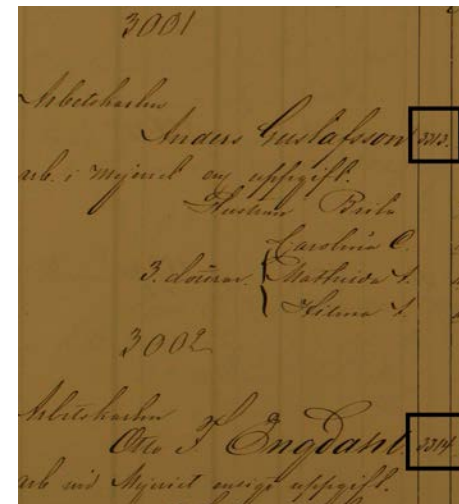 3001
Arbetskarlen
Anders Gustafsson 3313.
arb. i Mejeriet enl uppgift.
Hustrun Brita
Carolina C.
3. döttrar. { Mathilda A.
Hilma A.
3002
Arbetskarlen
Otto F Engdahl. 3314.
arb vid Mejeriet enligt uppgift.